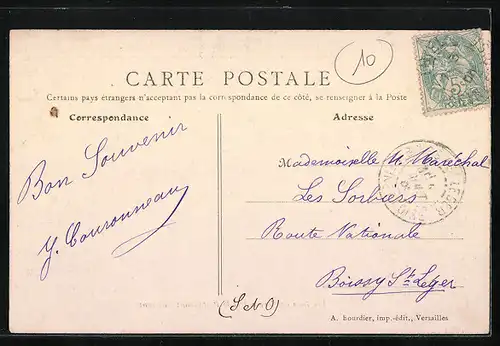 10
CARTE POSTALE
Certains pays étrangers n'acceptant pas la correspondance de ce côté, se renseigner à la Poste
Correspondance
Adresse
Bon Souvenir
Y. Couronneau
Mademoiselle M. Maréchal
Les Sorbiers
Route Nationale
Boissy St Léger
(S N O)
A. bourdier, imp.-édit., Versailles